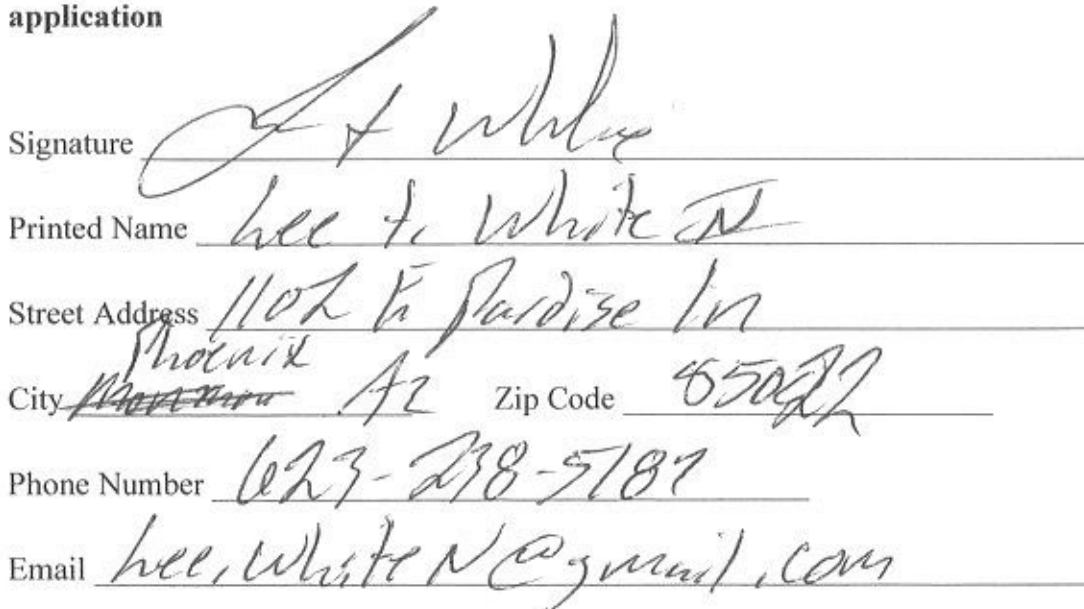 application
Signature
Printed Name Lee t. White IV
Street Address 1102 E Pardise ln
Phoenix
City AZ Zip Code 85022
Phone Number 623-238-5187
Email Lee.WhiteIV@gmail.com